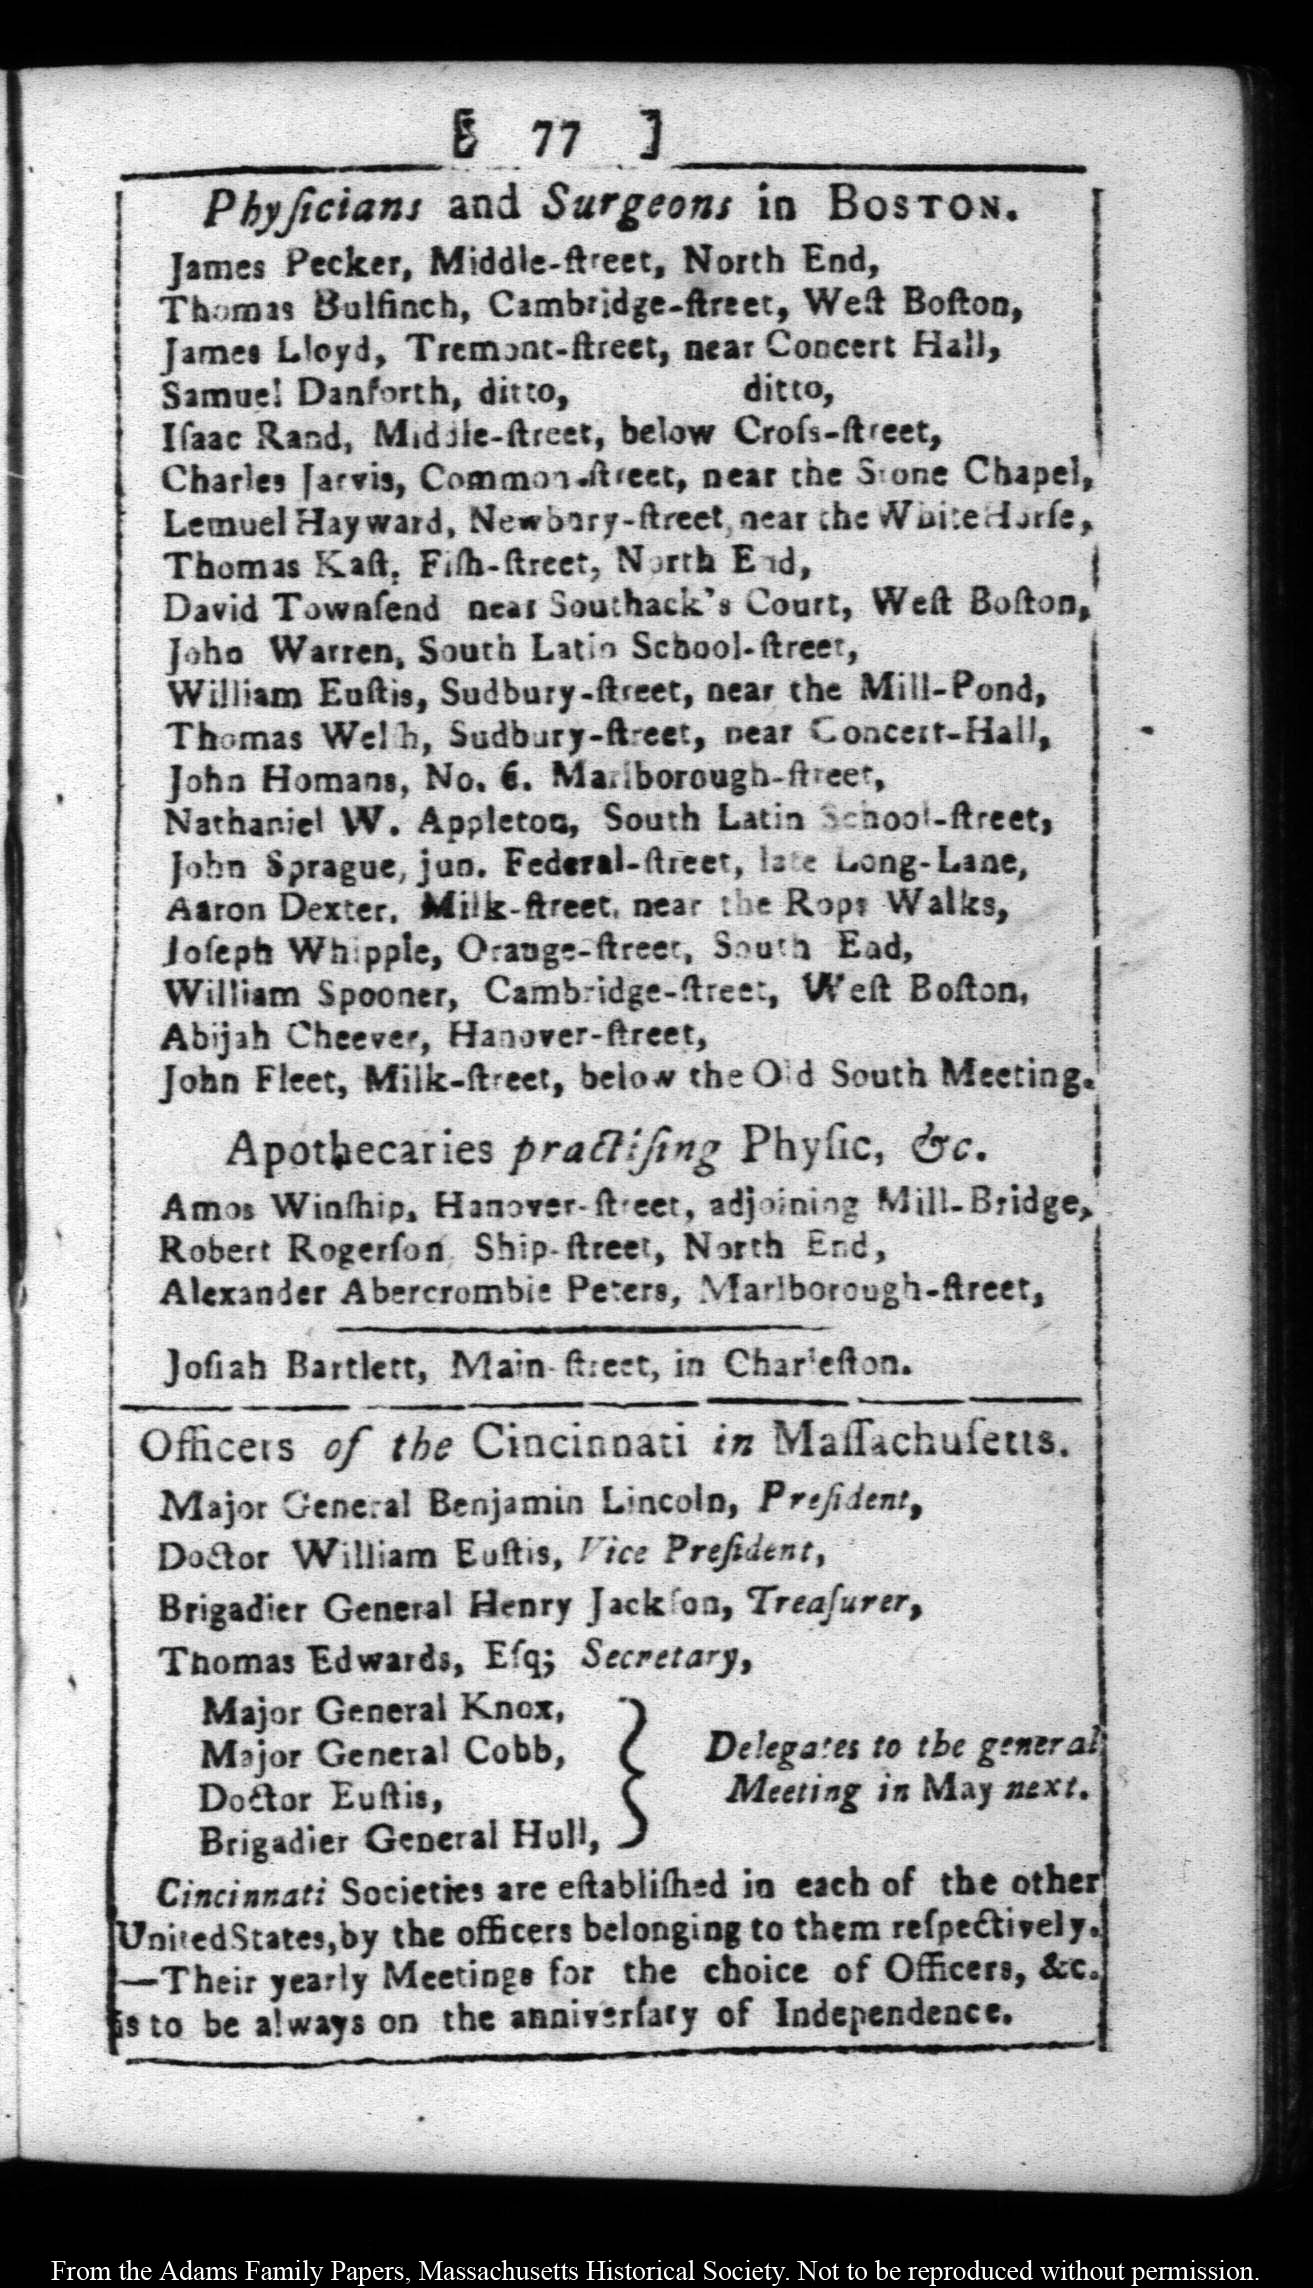 [ 77 ]
Phyſicians and Surgeons in BOSTON.
James Pecker, Middle-ſtreet, North End,
Thomas Bulfinch, Cambridge-ſtreet, Weſt Boſton,
James Lloyd, Tremont-ſtreet, near Concert Hall,
Samuel Danforth, ditto, ditto,
Iſaac Rand, Middle-ſtreet, below Croſs-ſtreet,
Charles Jarvis, Common-ſtreet, near the Stone Chapel,
Lemuel Hayward, Newbury-ſtreet, near the White Horſe,
Thomas Kaſt, Fiſh-ſtreet, North End,
David Townſend near Southack's Court, Weſt Boſton,
John Warren, South Latin School-ſtreet,
William Euſtis, Sudbury-ſtreet, near the Mill-Pond,
Thomas Welſh, Sudbury-ſtreet, near Concert-Hall,
John Homans, No. 6. Marlborough-ſtreet,
Nathaniel W. Appleton, South Latin School-ſtreet,
John Sprague, jun. Federal-ſtreet, late Long-Lane,
Aaron Dexter, Milk-ſtreet, near the Rope Walks,
Joſeph Whipple, Orange-ſtreet, South End,
William Spooner, Cambridge-ſtreet, Weſt Boſton,
Abijah Cheever, Hanover-ſtreet,
John Fleet, Milk-ſtreet, below the Old South Meeting.
Apothecaries practiſing Phyſic, &c.
Amos Winſhip, Hanover-ſtreet, adjoining Mill-Bridge,
Robert Rogerſon, Ship-ſtreet, North End,
Alexander Abercrombie Peters, Marlborough-ſtreet,
Joſiah Bartlett, Main-ſtreet, in Charleſton.
Officers of the Cincinnati in Maſſachuſetts.
Major General Benjamin Lincoln, Preſident,
Doctor William Euſtis, Vice Preſident,
Brigadier General Henry Jackſon, Treaſurer,
Thomas Edwards, Eſq; Secretary,
Major General Knox,
Major General Cobb,
Doctor Euſtis,
Brigadier General Hull,
Delegates to the general
Meeting in May next.
Cincinnati Societies are eſtabliſhed in each of the other
United States, by the officers belonging to them reſpectively.
—Their yearly Meetings for the choice of Officers, &c.
is to be always on the anniverſary of Independence.
From the Adams Family Papers, Massachusetts Historical Society. Not to be reproduced without permission.